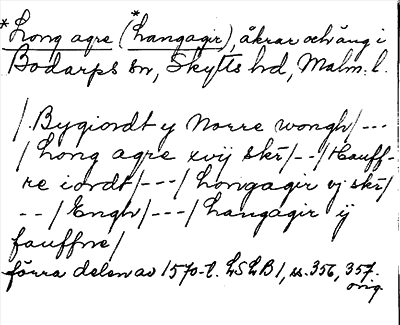 *Long agre (*Langagir), åkrar och äng i
Bodarps sn, Skytts hd, Malm. l.
/ Bygiordt y Norre wongh/---
/ Long agre xvij skr/--/Hauff-
re iordt/---/ Longagir vj skr/
--/ Engh/---/ Langagir ij
fauffne/
förra delen av 1570-t. LSLB 1, ss. 356, 357.
orig